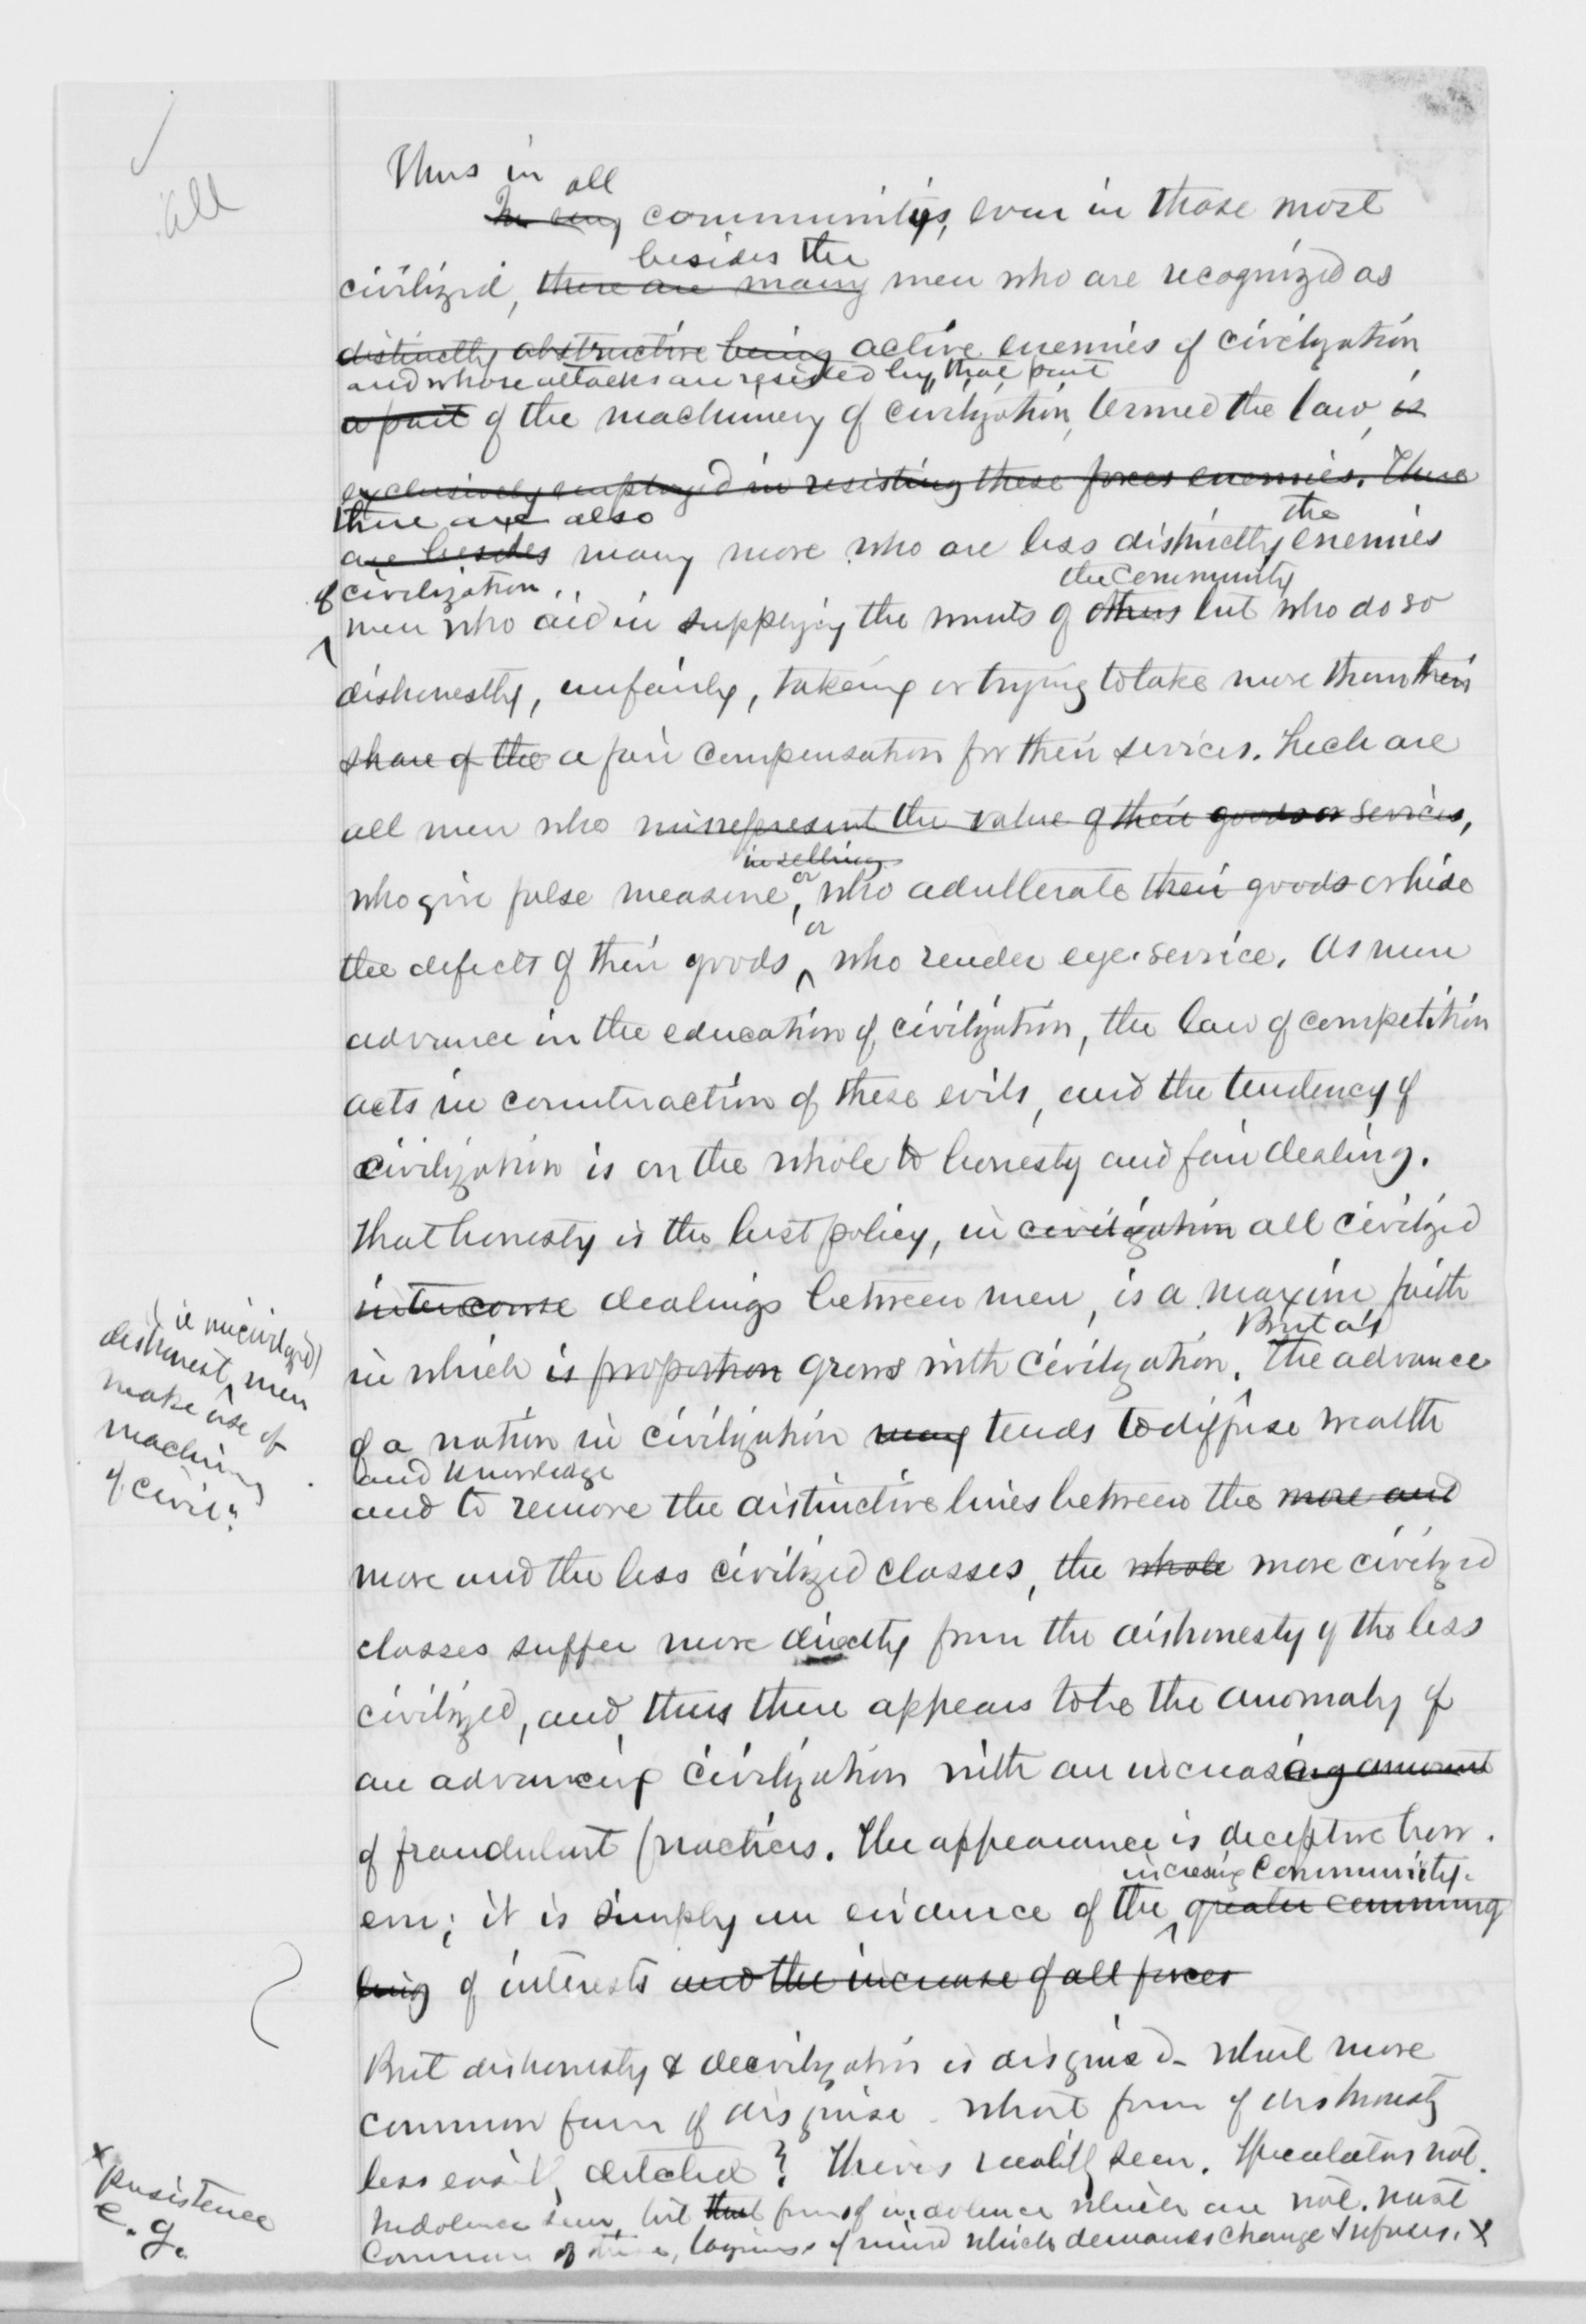 all
Thus in all
In any communities, even in those most
besides the
civilized, there are many men who are recognized as
distinctly obstructive being active enemies of civilization
and whose attacks are resisted by that part
a part of the machinery of civilization, termed the law, is
exclusively employed in resisting these forces enemies. There
there are also
the
are besides many more who are less distinctly enemies
of civilization,
the community
men who aid in supplying the wants of others but who do so
dishonestly, unfairly, takeing or trying to take more than their
share of the a fair compensation for their services. Such are
all men who misrepresent the value of their goods or services,
in selling
or
who give false measure, who adulterate their goods or hide
or
the defects of their goods who render eye-service. As men
advance in the education of civilization, the law of competition
acts in counteraction of these evils, and the tendency of
civilization is on the whole to honesty and fair dealing.
That honesty is the best policy, in civilization all civilized
intercourse dealings between men, is a maxim faith
But as
in which is proportion grows with civilization. The advance
of a nation in civilization may tends to diffuse wealth
and knowledge
and to remove the distinctive lines between the more and
more and the less civilized classes, the whole more civilized
classes suffer more directly from the dishonesty of the less
civilized, and thus there appears to be the anomaly of
an advancing civilization with an increasing amount
of fraudulent practices. The appearance is deceptive how-
increasing community
ever; it is simply an evidence of the greater comming
ling of interests and the increase of all forces
(ie uncivilized)
dishonest men
make use of
machinery
of civil:
But dishonesty & decivilization is disguised - what more
common form of disguise - what form of dishonesty
less easily detected? Thieves readily seen. Speculators not.
Indolence seen but that form of indolence which are not. Most
common of mind which demands change & refuses. x
x Persistence
e.g.